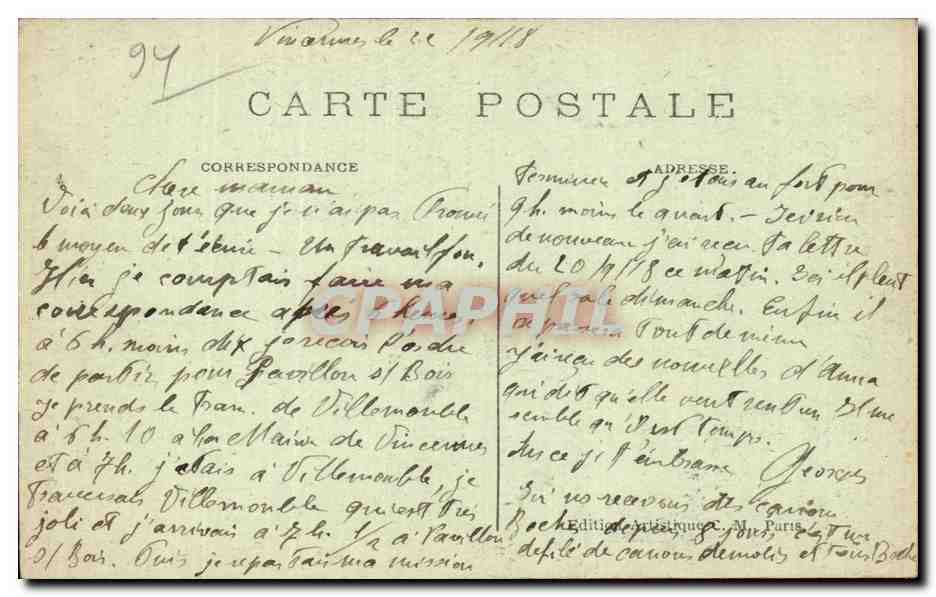 Vincennes le 22 1918
94
CARTE POSTALE
CORRESPONDANCE
Chere maman
Voici deux jours que je n'ai pas trouvé
le moyen de t'écrire - Un travail fou.
Hier je comptais faire ma
correspondance après heures
à 6 h. moins dix je reçois l'ordre
de partir pour Pavillon s/ Bois
Je prends le Tram. de Villemonble
à 6 h. 10 à la Mairie de Vincennes
et à 7h. j'étais à Villemonble, je
traversais Villemonble qui est très
joli et j'arrivais à 7h. 1/2 à Pavillon
s/ Bois. Puis je repartais ma mission
ADRESSE
terminée et j'étais au fort pour
9h. moins le quart. - Je viens
de nouveau j'ai reçu ta lettre
du 20/ /18 ce matin. Ici il pleut
quel sale dimanche. Enfin il
Tout de mieux
J'ai reçu des nouvelles d'Anna
qui dit qu'elle veut Il me
semble qu'il est temps.
Sur ce je t'embrasse Georges
Ici ns recevons des canons
Boches depuis 8 jours c'est un
défilé de canons démolis et tous Boches
Edition Artistique C. M. Paris
CPAPHIL